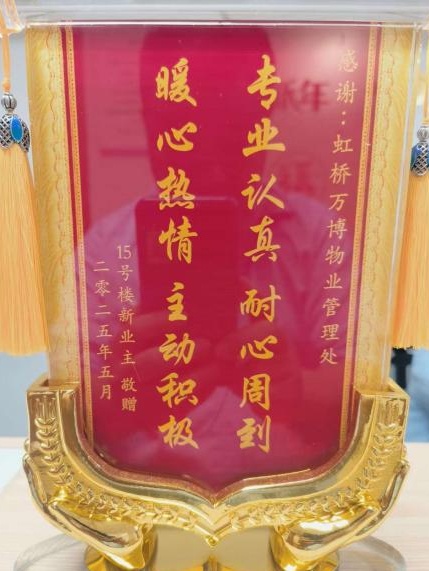 感谢：虹桥万博物业管理处
专业认真 耐心周到
暖心热情 主动积极
15号楼新业主 敬赠
二零二五年五月